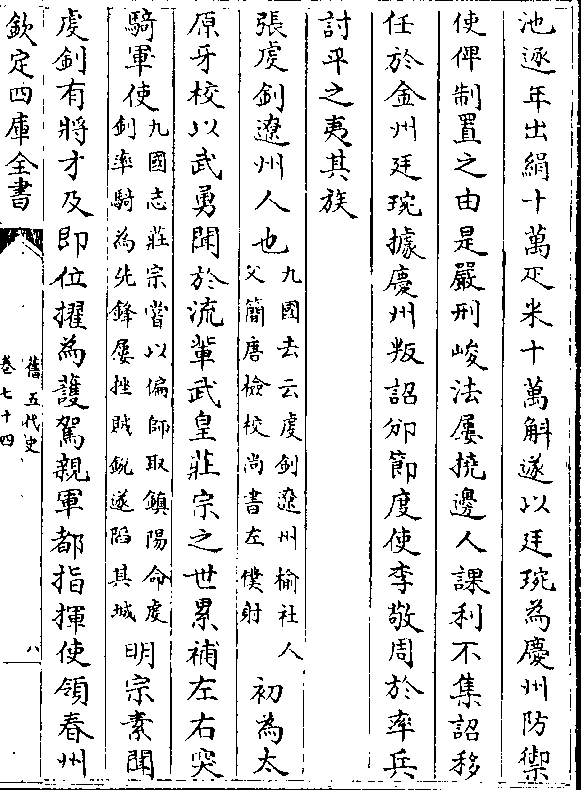 池逐年出絹十萬疋米十萬斛遂以廷琬為慶州防禦
使俾制置之由是嚴刑峻法屢撓邊人課利不集詔移
任於金州廷琬據慶州叛詔邠節度使李敬周於率兵
討平之夷其族
張虔釗遼州人也九國志云虔釗遼州榆社人父簡唐檢校尚書左僕射初為太
原牙校以武勇聞於流輩武皇莊宗之世累補左右突
騎軍使九國志莊宗嘗以偏師取鎮陽命虔釗率騎為先鋒屢挫賊銳遂陷其城明宗素聞
虔釗有將才及即位擢為護駕親軍都指揮使領春州
欽定四庫全書
舊五代史
卷七十四
八